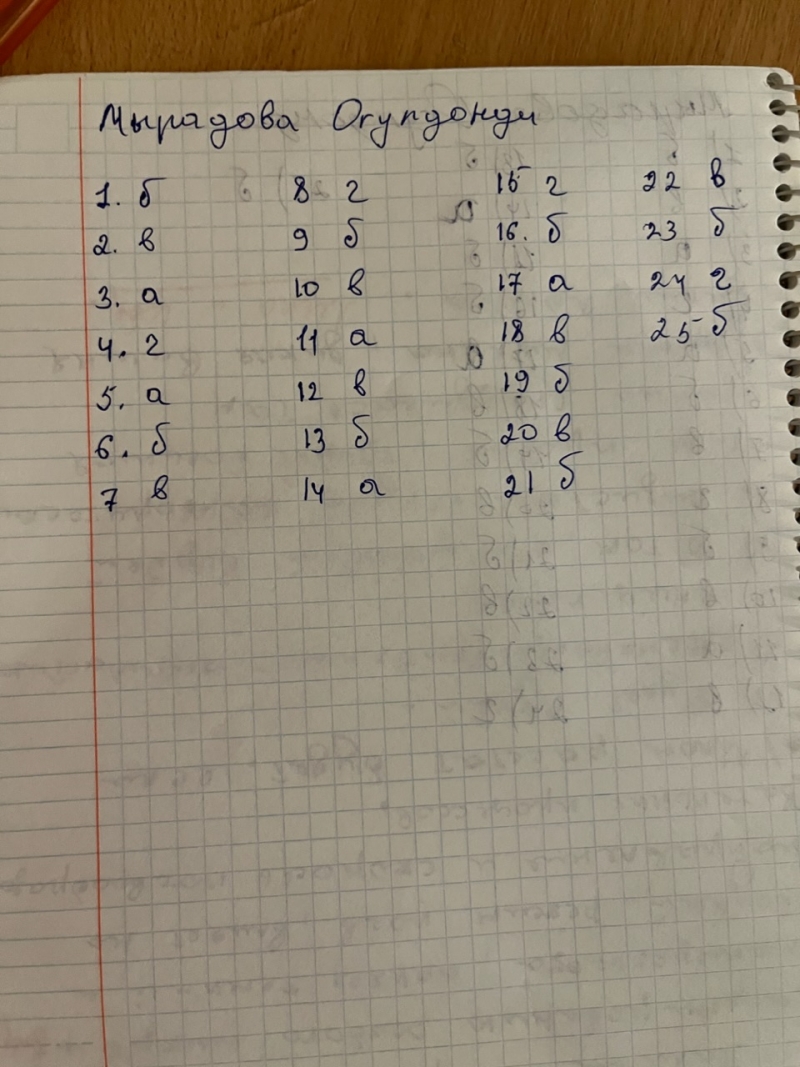 Мырадова Огулдонди
1. б 8 г 15 г 22 в
2. в 9 б 16. б 23 б
3. а 10 в 17 а 24 г
4. г 11 а 18 в 25 б
5. а 12 в 19 б
6. б 13 б 20 в
7 в 14 а 21 б